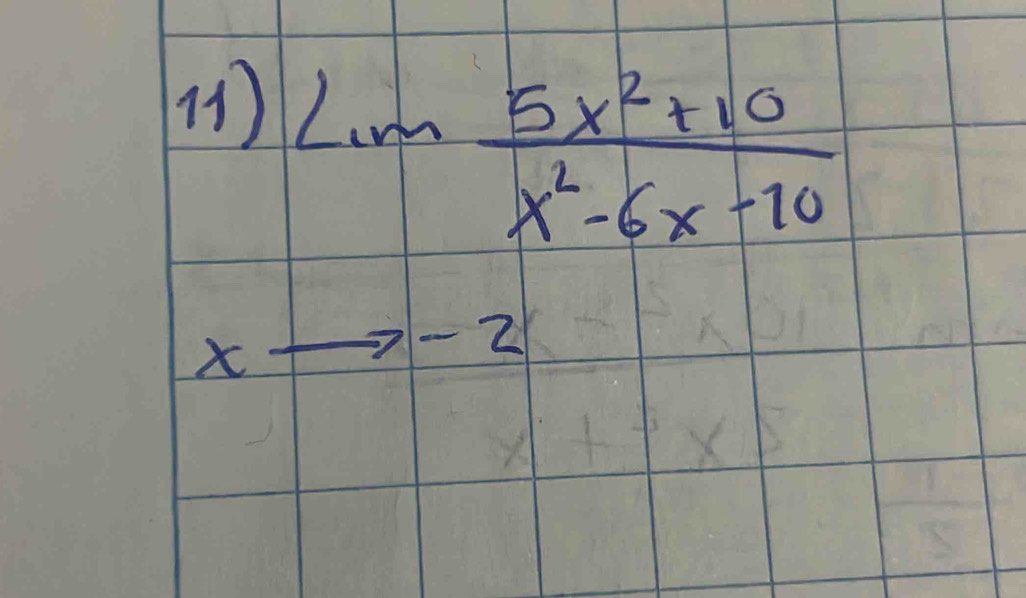 11) Lim 5x² + 10
x² - 6x - 10
x → - 2